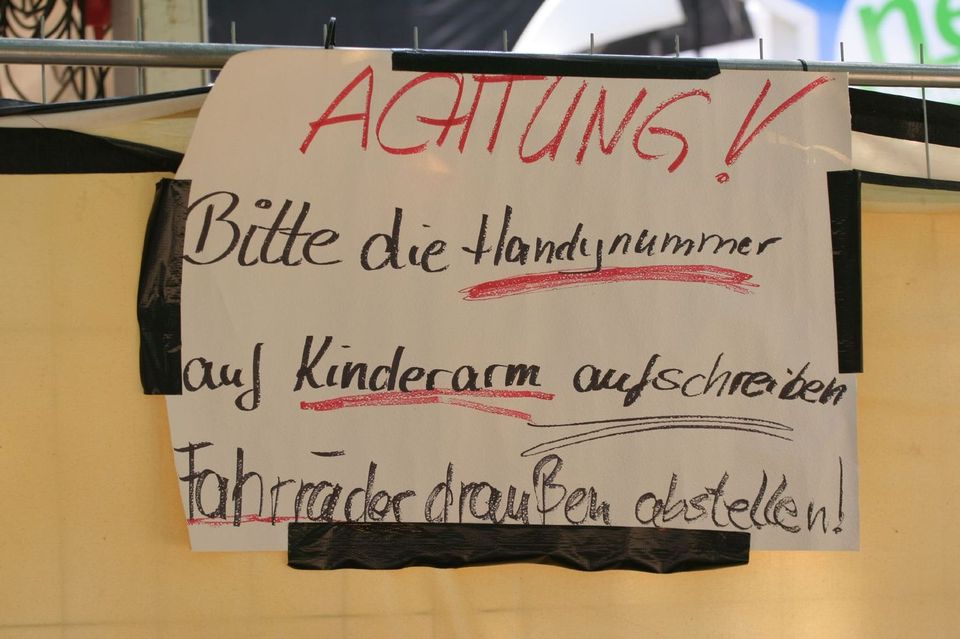 ne
ACHTUNG!
Bitte die Handynummer
auf Kinderarm aufschreiben
Fahrräder draußen abstellen!